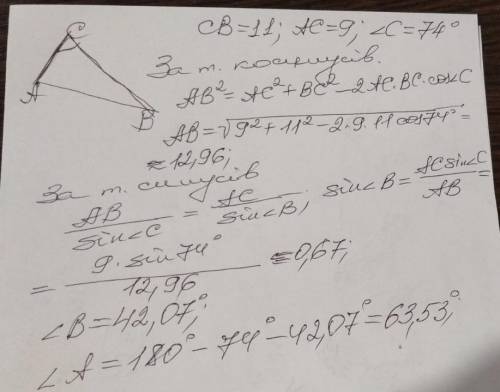 C
A
B
CB=11; AC=9; ∠C=74°
За т. косинусів.
AB²=AC²+BC²-2AC·BC·cos∠C
AB=√9²+11²-2·9·11cos74°=
≈12,96;
За т. синусів
AB/sin∠C = AC/sin∠B; sin∠B=ACsin∠C/AB=
= 9·sin74°/12,96 ≈0,67;
∠B=42,07°;
∠A=180°-74°-42,07°=63,53°;